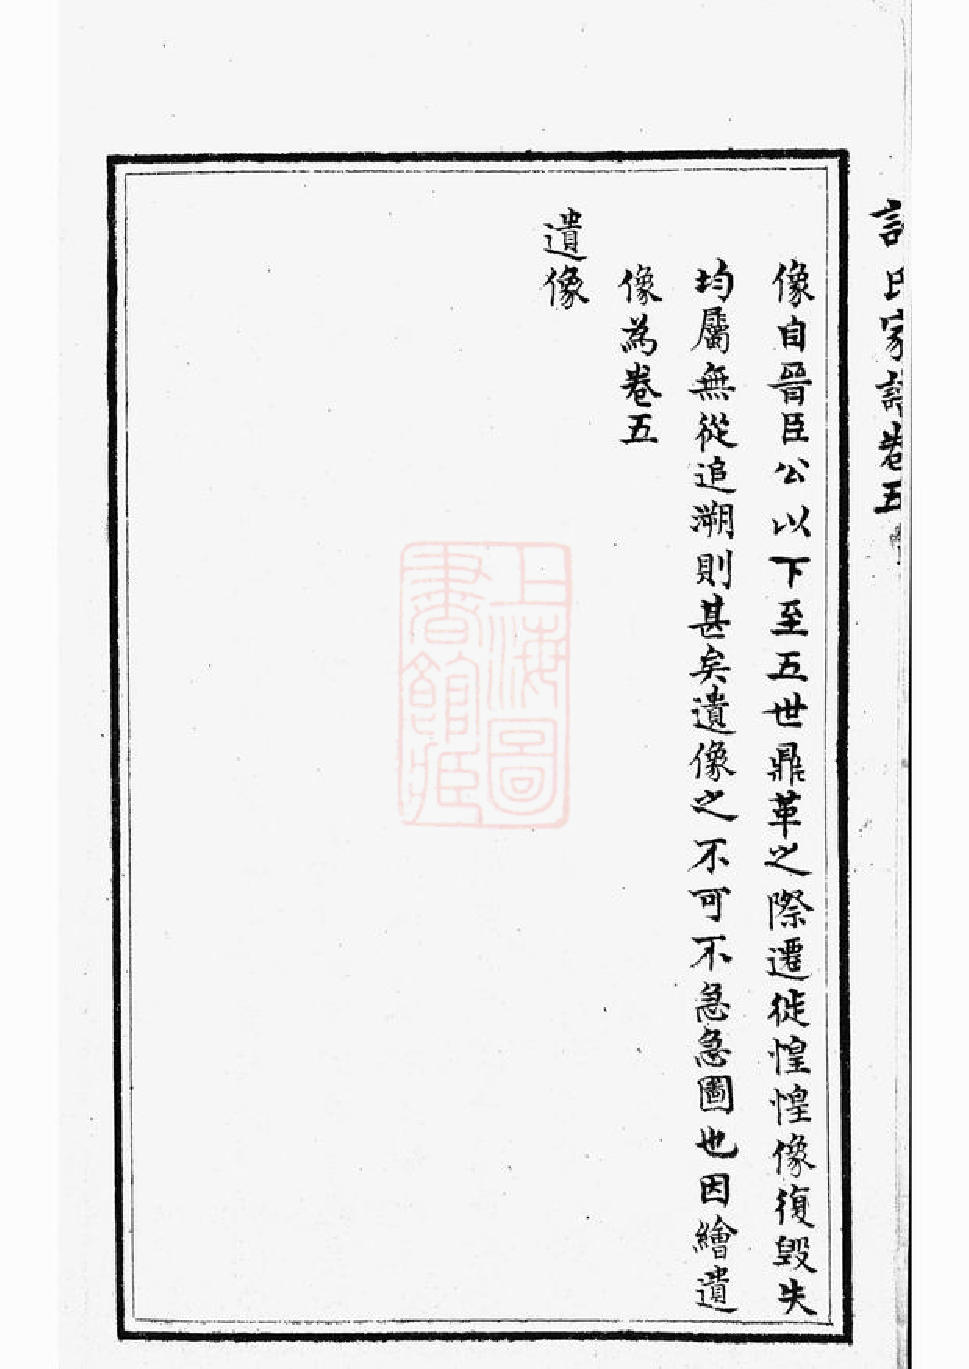 許氏家譜卷五
像自晉臣公以下至五世鼎革之際遷徙惶惶像復毀失
均屬無從追溯則甚矣遺像之不可不急急圖也因繪遺
像為卷五
遺像
上海圖
書館藏